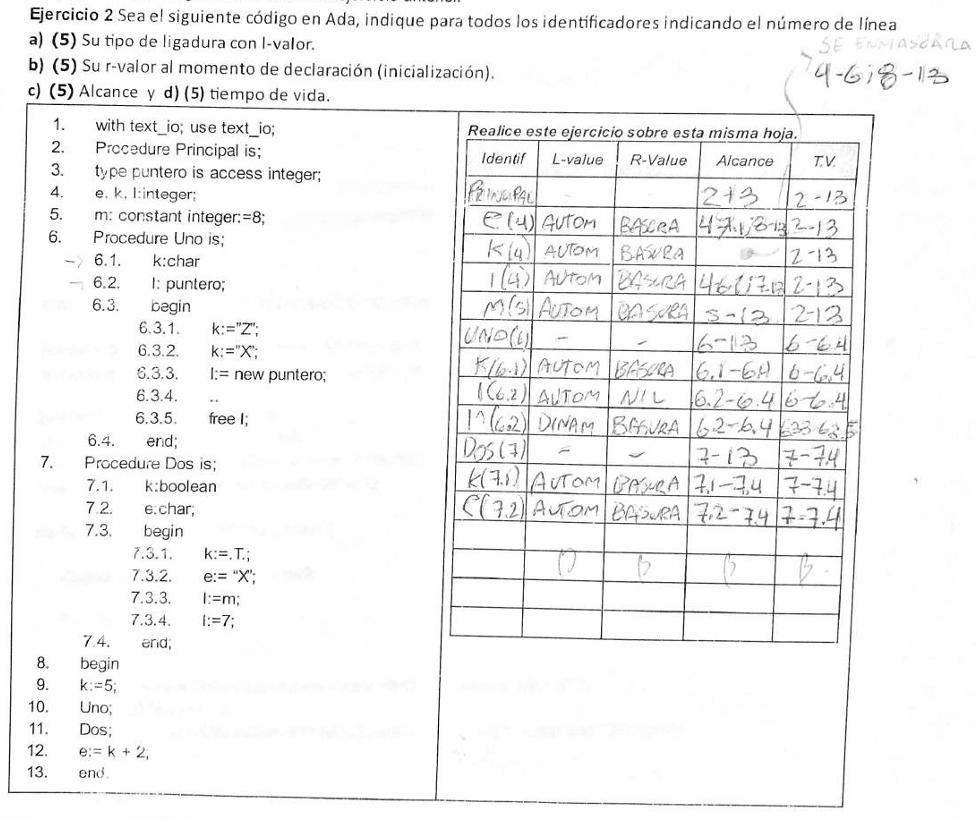 Ejercicio 2 Sea el siguiente código en Ada, indique para todos los identificadores indicando el número de línea
a) (5) Su tipo de ligadura con l-valor.
SE ENMASCARA
b) (5) Su r-valor al momento de declaración (inicialización).
4-6;8-13
c) (5) Alcance y d) (5) tiempo de vida.
1. with text_io; use text_io;
2. Procedure Principal is;
3. type puntero is access integer;
4. e, k, l:integer;
5. m: constant integer:=8;
6. Procedure Uno is;
6.1. k:char
6.2. l: puntero;
6.3. begin
6.3.1. k:="Z";
6.3.2. k:="X";
6.3.3. l:= new puntero;
6.3.4. ..
6.3.5. free l;
6.4. end;
7. Procedure Dos is;
7.1. k:boolean
7.2. e:char;
7.3. begin
7.3.1. k:=.T.;
7.3.2. e:= "X";
7.3.3. l:=m;
7.3.4. l:=7;
7.4. end;
8. begin
9. k:=5;
10. Uno;
11. Dos;
12. e:= k + 2;
13. end.
Realice este ejercicio sobre esta misma hoja.
Identif L-value R-Value Alcance T.V.
PRINCIPAL - - 2-13 2-13
e(4) AUTOM BASURA 4-7.1;8-13 2-13
K(4) AUTOM BASURA 2-13
l(4) AUTOM BASURA 2-13
M(5) AUTOM BASURA 5-13 2-13
UNO(6) - - 6-13 6-6.4
K(6.1) AUTOM BASURA 6.1-6.4 6-6.4
l(6.2) AUTOM NIL 6.2-6.4 6-6.4
l^(6.2) DINAM BASURA 6.2-6.4 6.3.3-6.3.5
DOS(7) - - 7-13 7-7.4
K(7.1) AUTOM BASURA 7.1-7.4 7-7.4
e(7.2) AUTOM BASURA 7.2-7.4 7-7.4